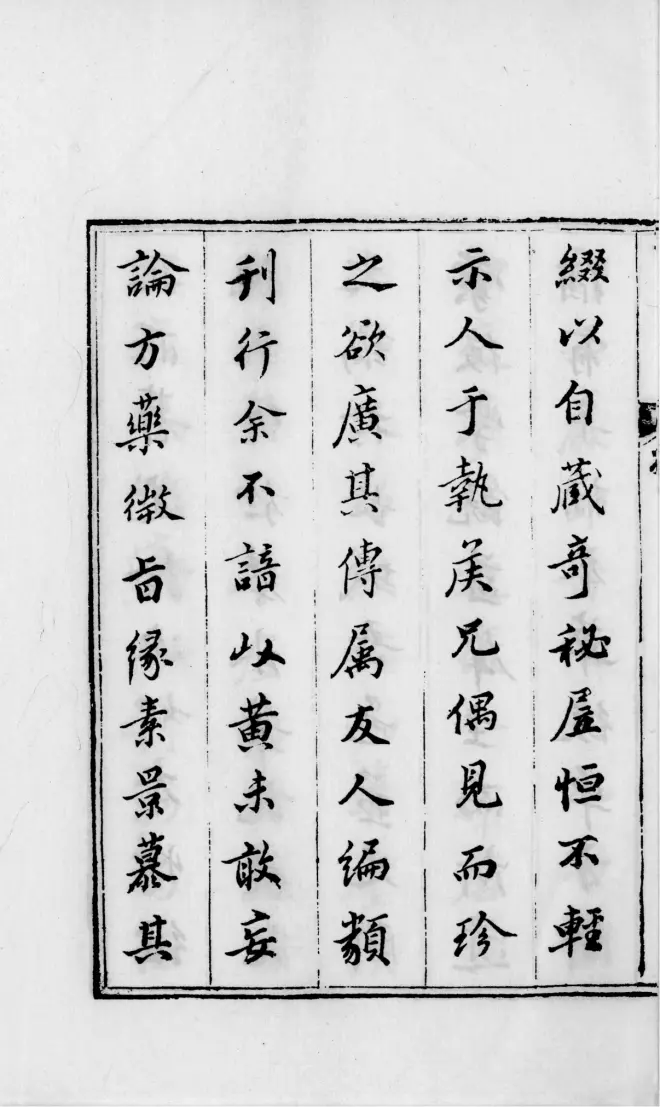 綴以自蔵奇秘㞐恒不輕
示人于執侯兄偶見而珍
之欲廣其傳属友人編類
刊行余不諳岐黄未敢妄
論方藥微旨緣素景慕其